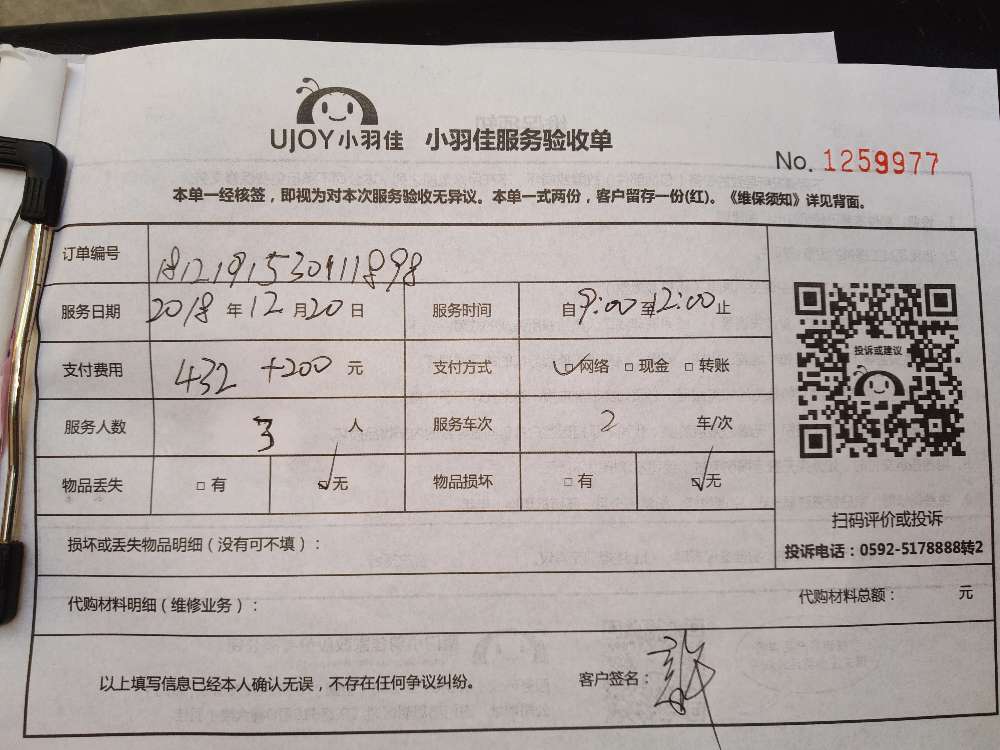 UJOY小羽佳 小羽佳服务验收单
No. 1259977
本单一经核签，即视为对本次服务验收无异议。本单一式两份，客户留存一份(红)。《维保须知》详见背面。
订单编号 181219153041898
服务日期 2018 年 12 月 20 日 服务时间 自 9:00 至 12:00 止
支付费用 432 +200 元 支付方式 ☑网络 □现金 □转账
服务人数 3 人 服务车次 2 车/次
物品丢失 □有 ☑无 物品损坏 □有 ☑无
投诉或建议
扫码评价或投诉
投诉电话：0592-5178888转2
损坏或丢失物品明细（没有可不填）：
代购材料明细（维修业务）： 代购材料总额： 元
以上填写信息已经本人确认无误，不存在任何争议纠纷。 客户签名：